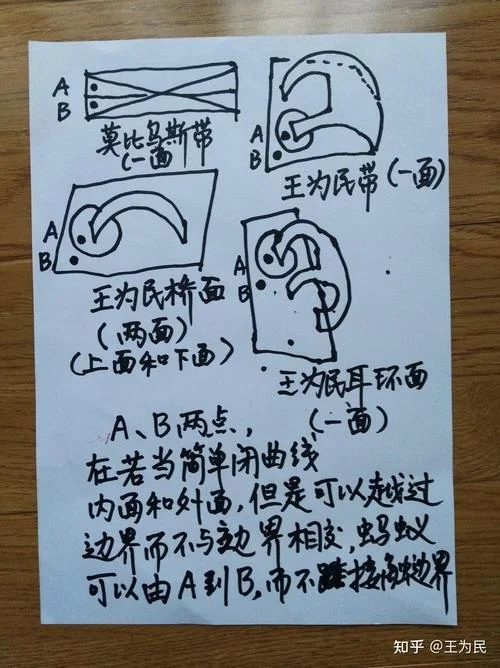 A
B
莫比乌斯带
(一面)
A
B
王为民带(一面)
A
B
王为民桥面
(两面)
(上面和下面)
A
B
王为民耳环面
(一面)
A、B两点,
在若当简单闭曲线
内面和外面,但是可以越过
边界而不与边界相交,蚂蚁
可以由A到B,而不接触边界
知乎 @王为民